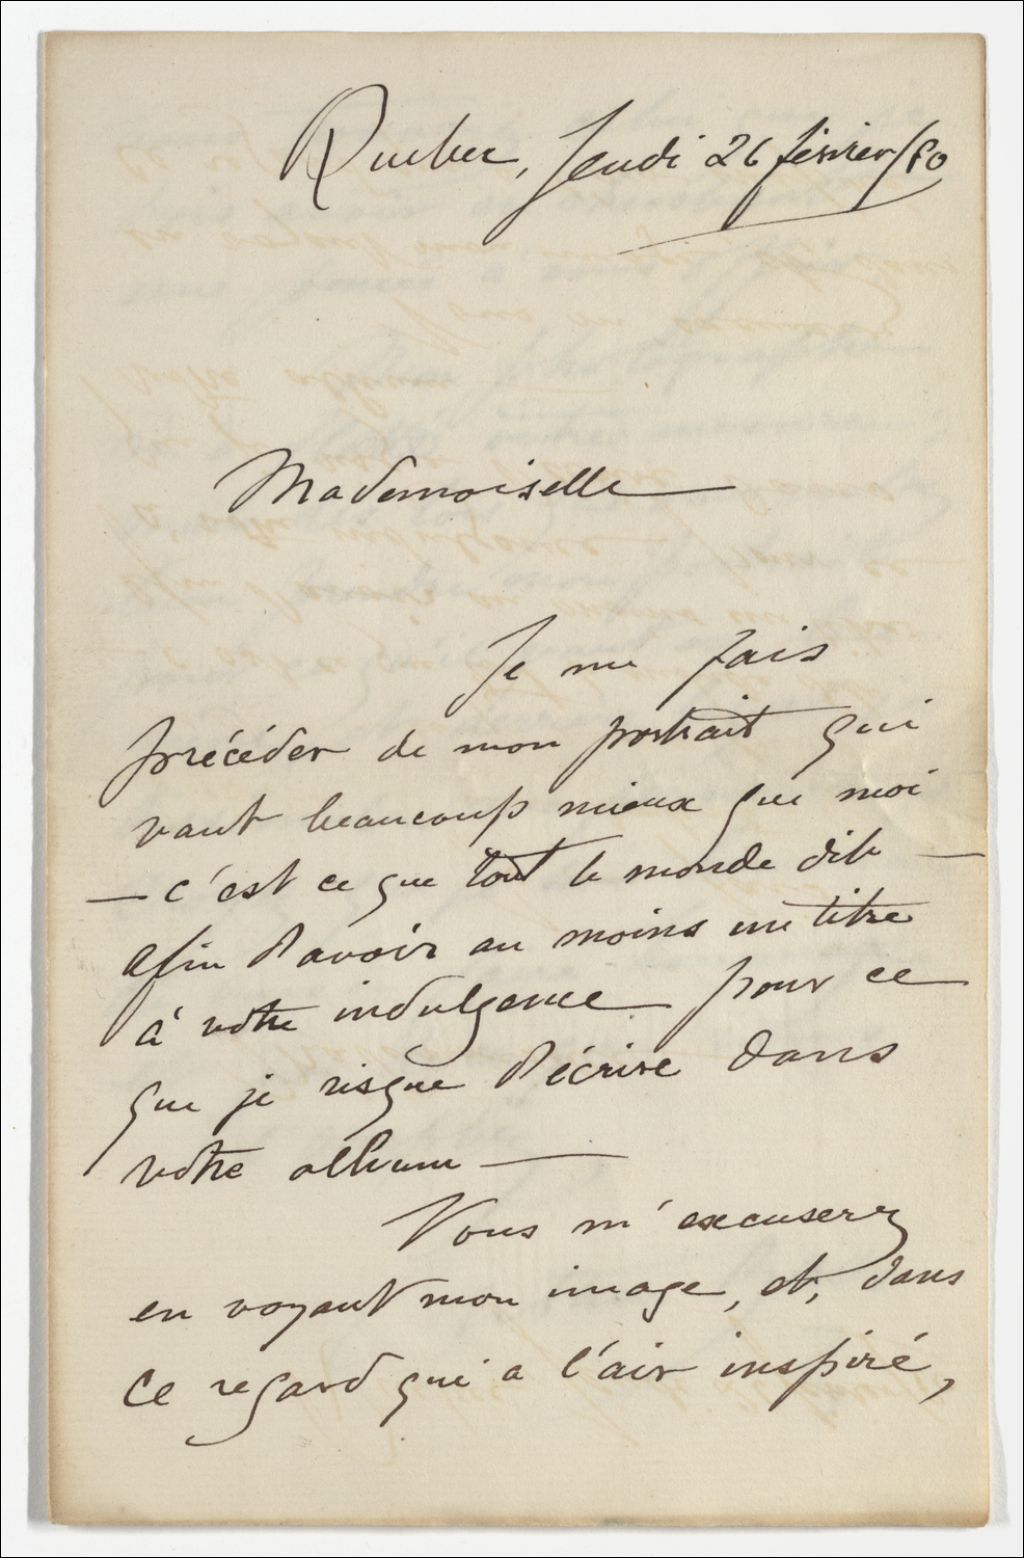 Quebec, Jeudi 26 février/80
Mademoiselle
Je me fais
précéder de mon portrait qui
vaut beaucoup mieux que moi
— c'est ce que tout le monde dit —
afin d'avoir au moins un titre
à votre indulgence pour ce
que je risque d'écrire dans
votre album —
Vous m'excuserez
en voyant mon image, et, dans
ce regard qui a l'air inspiré,